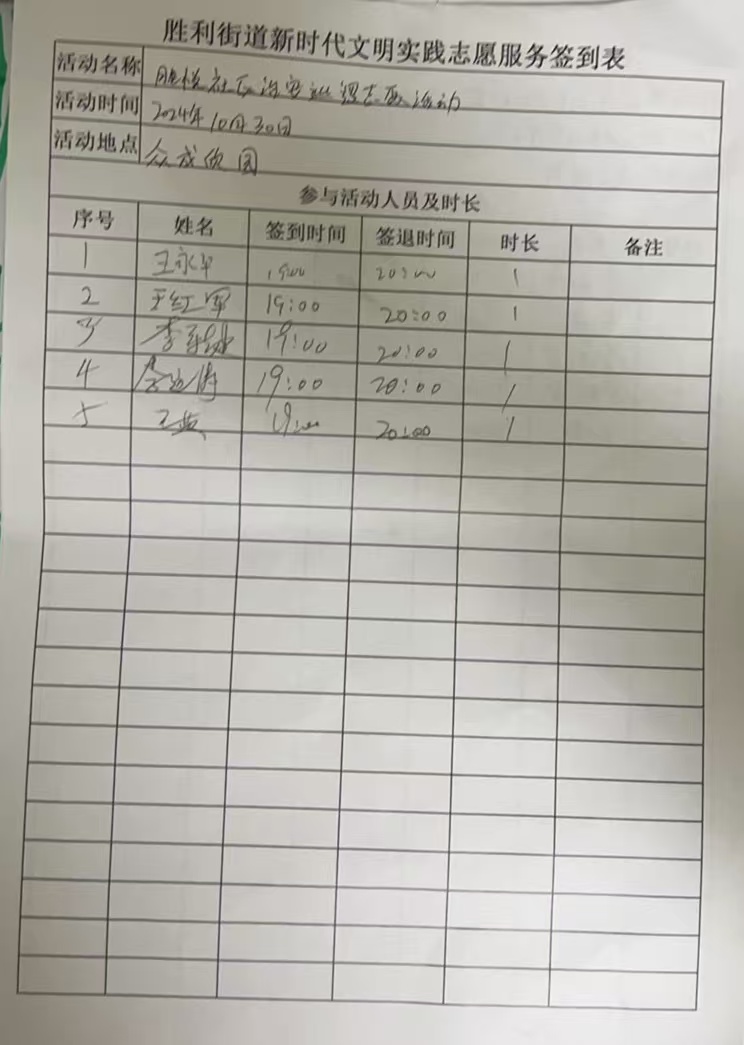 胜利街道新时代文明实践志愿服务签到表
活动名称 社区治安巡逻志愿活动
活动时间 2024年10月30日
活动地点 众成
参与活动人员及时长
序号 姓名 签到时间 签退时间 时长 备注
1 王永军 19:00 20:00 1
2 王红军 19:00 20:00 1
3 李 19:00 20:00 1
4 19:00 20:00 1
5 王 19:00 20:00 1